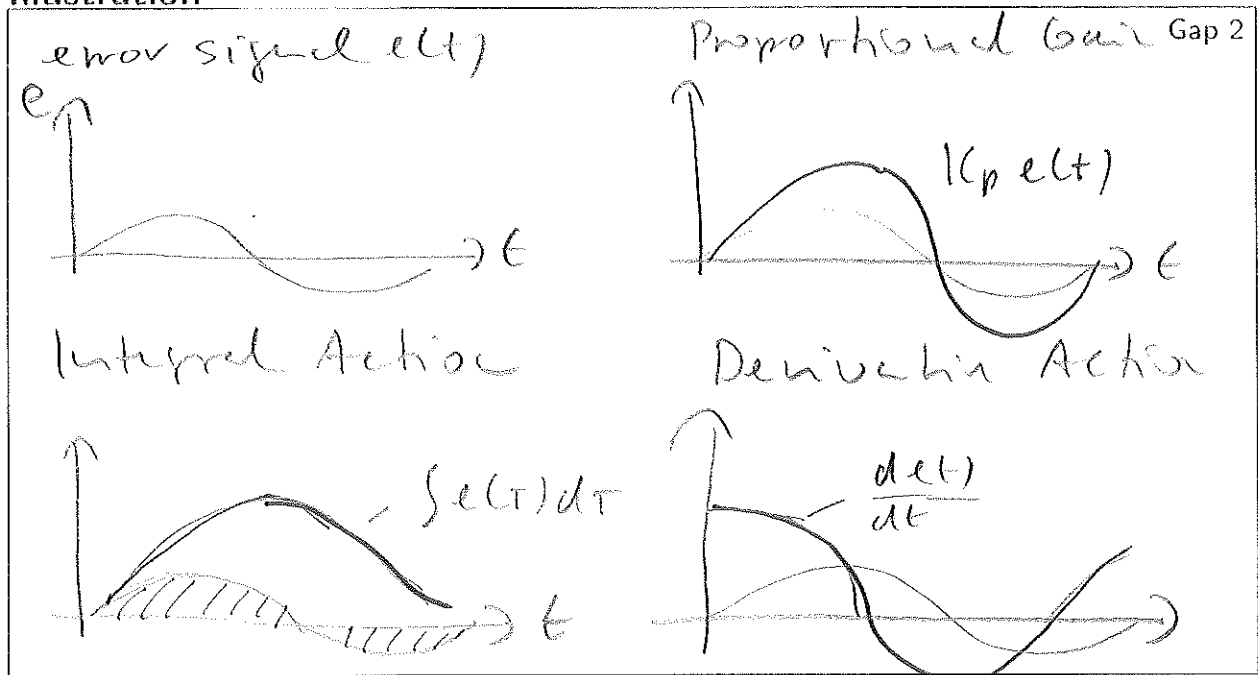 Illustration
error signal e(t)
e
t
Proportional Gain
Gap 2
Kp e(t)
t
Integral Action
∫e(τ)dτ
t
Derivative Action
de(t)
dt